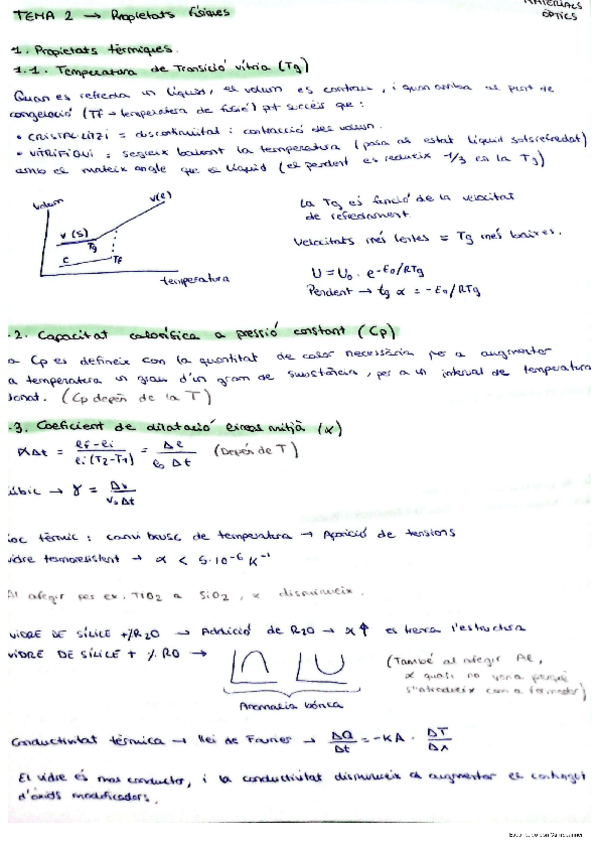 MATERIALS
ÒPTICS
TEMA 2 → Propietats físiques
1. Propietats tèrmiques.
1.1. Temperatura de Transició vítria (Tg)
Quan es refreda un líquid, el volum es contrau, i quan arriba al punt de
congelació (Tf → temperatura de fusió) pt succeir que:
• CRISTAL·LITZI = discontinuitat i contracció del volum.
• VITRIFIQUI = segueix baixant la temperatura (passa al estat líquid sotsrefredat)
amb el mateix angle que el líquid (el pendent es redueix ~1/3 en la Tg)
volum
V(l)
V(S)
Tg
C
Tf
temperatura
La Tg es funció de la velocitat
de refredament.
Velocitats més lentes = Tg més baixes.
U = U₀ · e^-E₀/RTg
Pendent → tg α = -E₀/RTg
.2. Capacitat calorífica a pressió constant (Cp)
a Cp es defineix com la quantitat de calor necessària per a augmentar
a temperatura un grau d'un gram de substància, per a un interval de temperatura
donat. (Cp depèn de la T)
.3. Coeficient de dilatació lineal mitjà (α)
αΔt = lf-li / li(T2-T1) = Δl / l₀ Δt (Depèn de T)
úbic → γ = Δv / v₀ Δt
oc tèrmic: canvi brusc de temperatura → Aparició de tensions
vidre termoresistent → α < 5·10⁻⁶ K⁻¹
Al afegir per ex. TiO2 a SiO2, α disminueix.
VIDRE DE SÍLICE + % R2O → Addició de R2O → α↑ es trenca l'estructura
VIDRE DE SÍLICE + % RO →
(També al afegir Al,
α quasi no varia perquè
s'introdueix com a formador)
Anomalia bòrica
Conductivitat tèrmica → Llei de Fourier → ΔQ/Δt = -KA · ΔT/Δx
El vidre és mal conductor, i la conductivitat disminueix al augmentar el contingut
d'òxids modificadors.